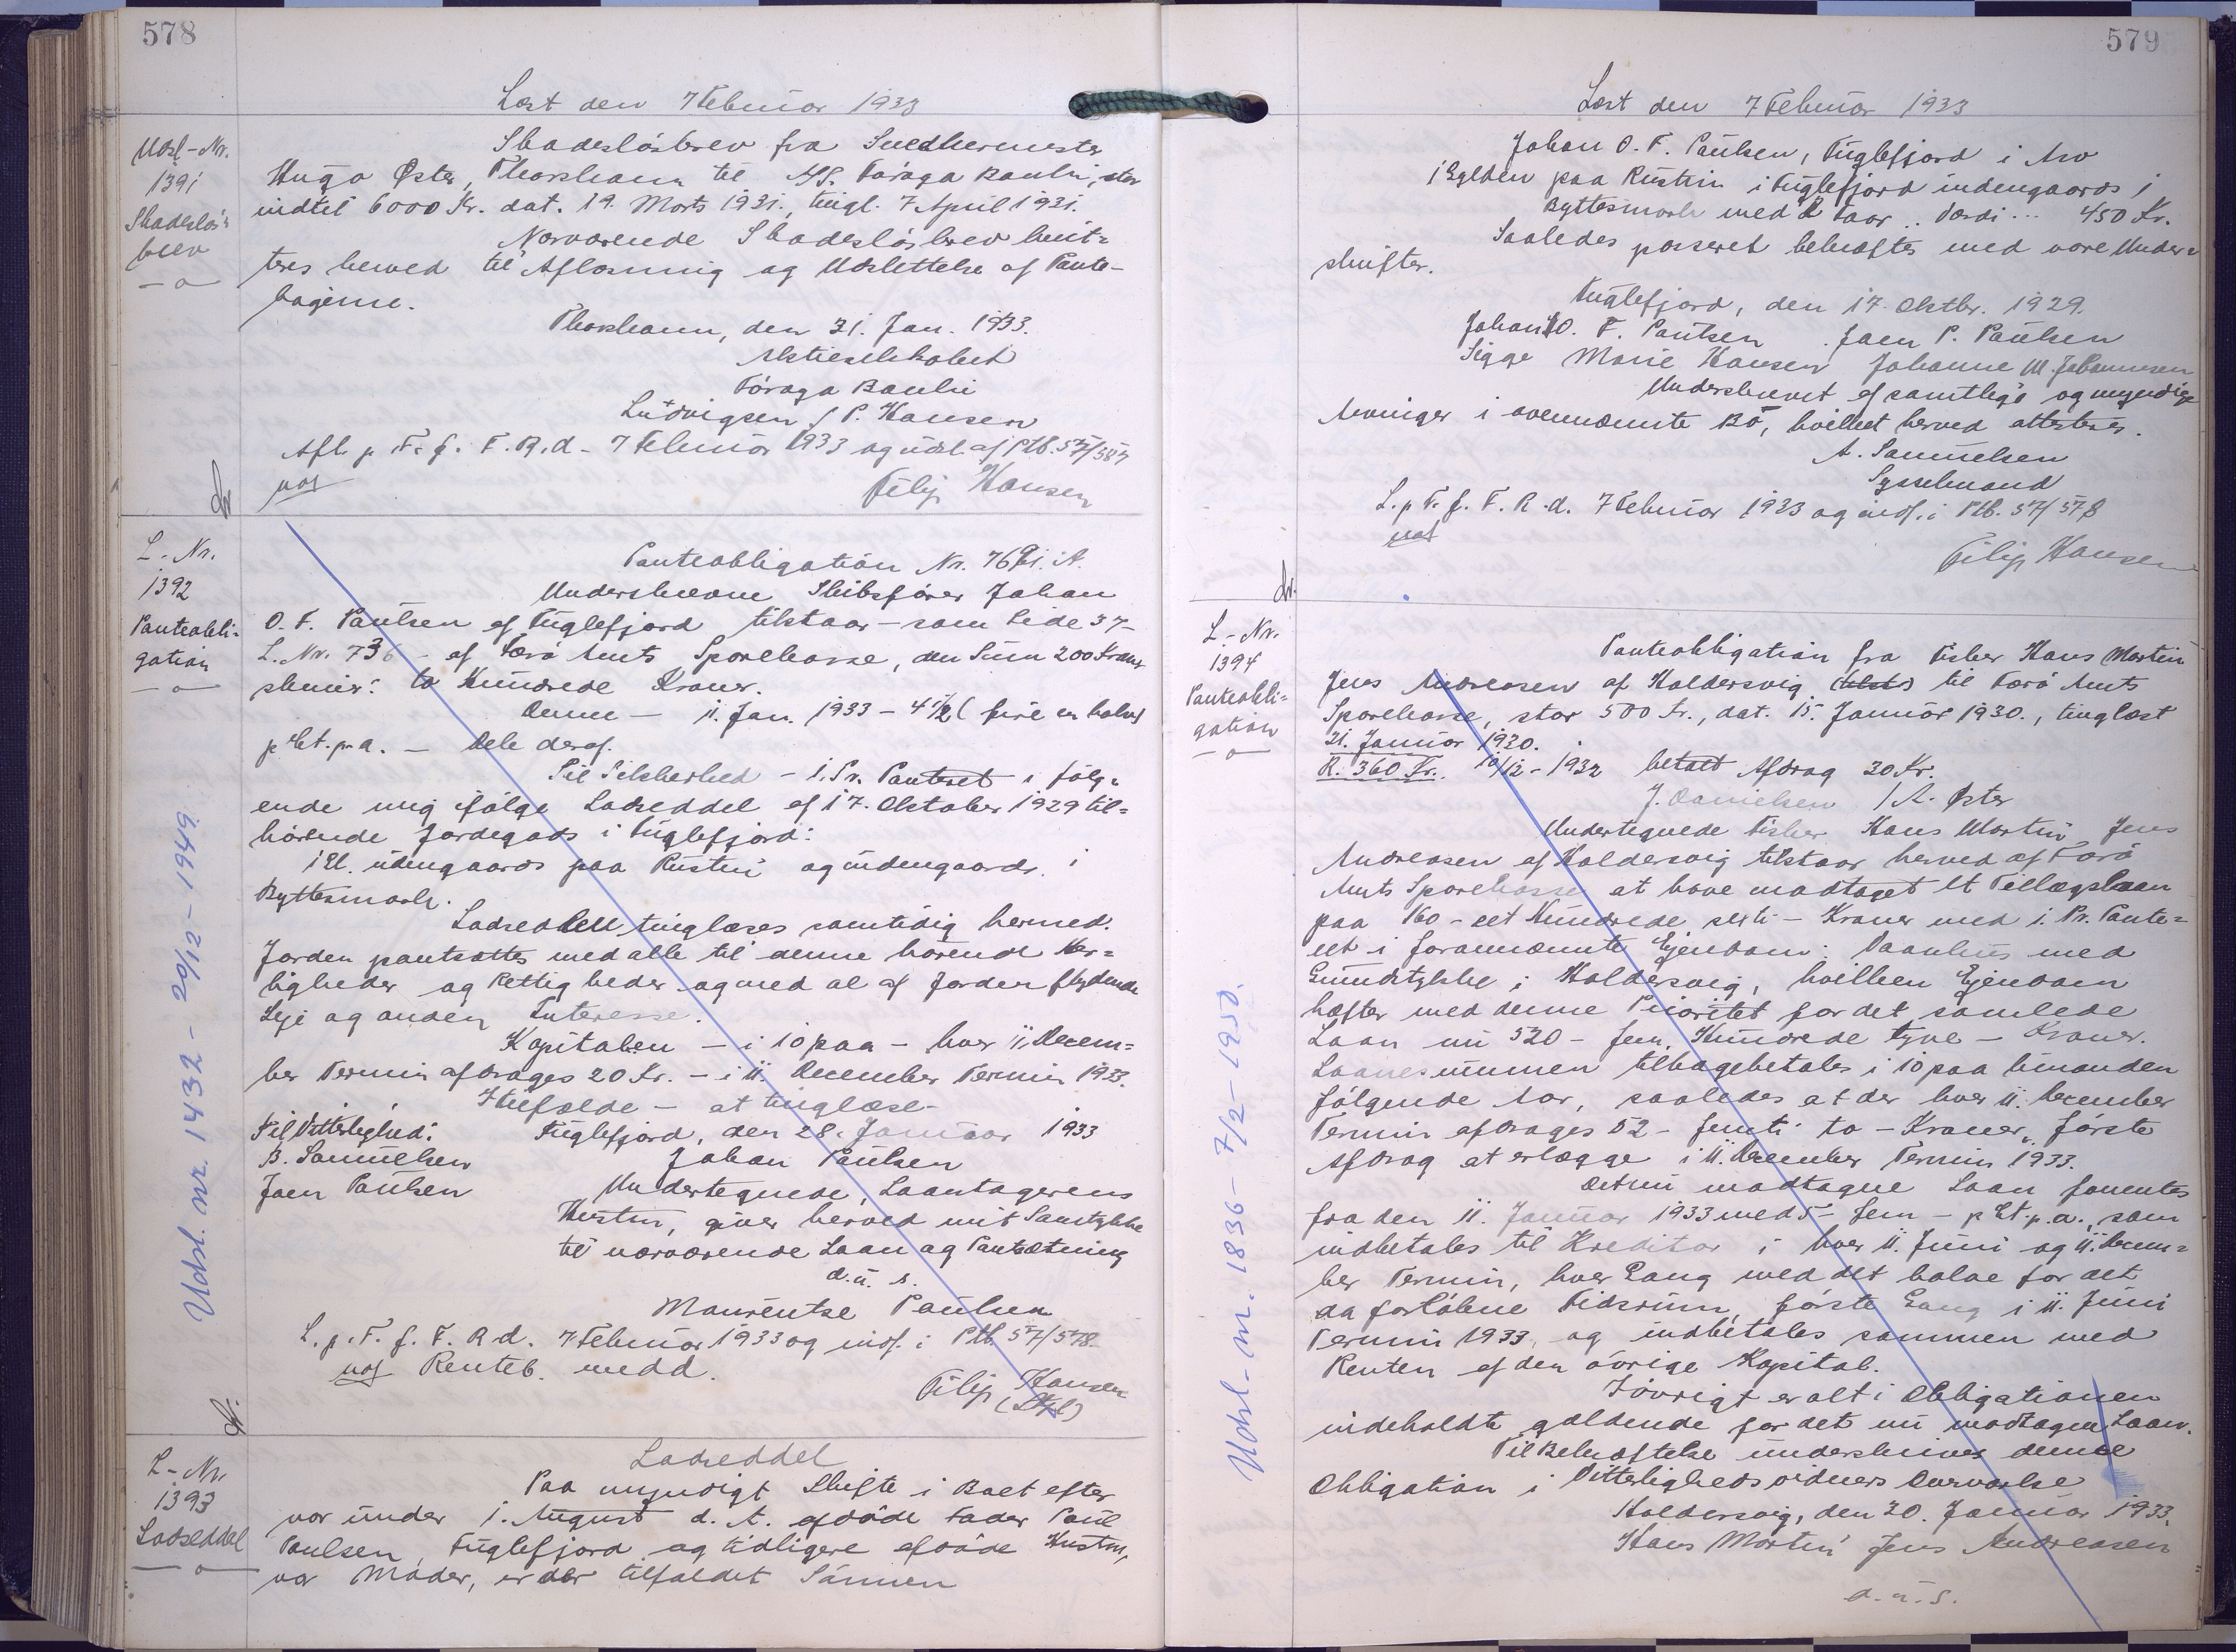 578
Læst den 7 Februar 1933
Udsl-Nr.
1391
Skadesløs-
brev
Skadesløsbrev fra Snedkermester
Hugo Øster, Thorshavn til A/S. Føroya Banki, stor
indtil 6000 Kr. dat. 19. Marts 1931., tingl. 7 April 1931.
Nærværende Skadesløsbrev kvit=
teres herved til Aflæsning og Udslettelse af Pante-
bøgerne.
Thorshavn, den 31. Jan. 1933.
Aktieselskabet
Føroya Banki
Ludvigsen / P. Hansen
Afl. p. T. f. F. R. d. 7 Februar 1933 og udsl. af Ptb.
Filip Hansen
L.-Nr.
1392
Panteobli=
gation
Panteobligation Nr. A.
Underskrevne Skibsfører Johan
O. F. Paulsen af Fuglefjord tilstaar - som Side 37-
L. Nr. 736 - af Færø Amts Sparekasse, den Sum 200 Kroner
skriver: to Hundrede Kroner.
Denne - 11. Jan. 1933 - 4 1/2 ( fire en halv)
p Ct. p. a. - Dele deraf.
Til Sikkerhed - 1. Pr. Panteret i følg=
ende mig ifølge Lodseddel af 17. Oktober 1929 til=
hørende Jordegods i Fuglefjord:
udengaards paa Rustin og indengaards i
Byttesmark.
Lodseddelen tinglæses samtidig hermed.
Jorden pantsættes med alle til denne hørende Her=
ligheder og Rettigheder og med al af Jorden flydende
Leje og anden Interesse.
Kapitalen - i 10 paa - hver 11. Decem=
ber Termin afdrages 20 Kr. - i 11. December Termin 1933.
I Tilfælde - at tinglæse-
Til Vitterlighed: Fuglefjord, den 28. Januar 1933
B. Samuelsen Johan Paulsen
Joen Paulsen Undertegnede, Laantagerens
Hustru, giver herved mit Samtykke
til nærværende Laan og Pantsætning
d. u. s.
Maurentse Paulsen
L. p. T. f. F. R. d. 7 Februar 1933 og indf. i Ptb. 57/578.
Renteb. medd.
Filip Hansen
Udsl. nr. 1432 - 20/12 - 1949.
L-Nr.
1393
Lodseddel
Lodseddel
Paa myndigt Skifte i Boet efter
vor under 1. August d. A. afdøde Fader Poul
Paulsen, Fuglefjord og tidligere afdøde Hustru,
vor Moder, er der tilfaldet Sønnen
579
Læst den 7 Februar 1933
Johan O. F. Paulsen, Fuglefjord i Arv
paa Rustin i Fuglefjord indengaards i
Byttesmark med 2 Faar .. Værdi ... 450 Kr.
Saaledes passeret bekræftes med vore Under=
skrifter.
Fuglefjord, den 17. Oktbr. 1929.
Johan O. F. Paulsen Joen P. Paulsen
Sigga Marie Hansen Johanne M. Johannesen
Underskrevet af samtlige og myndige
Arvinger i ovennævnte Bo, hvilket herved attesteres.
A. Samuelsen
Sysselmand
L. p. T. f. F. R. d. 7 Februar 1933 og indf. i Ptb. 57/578
Filip Hansen
L.-Nr.
1394
Panteobli=
gation
Panteobligation fra Fisker Hans Martin
Jens Andreasen af Haldersvig til Færø Amts
Sparekasse, stor 500 Kr., dat. 15. Januar 1930., tinglæst
21. Januar 1930.
R. 360 Kr. 10/12 - 1932 betalt Afdrag 30 Kr.
J. Danielsen / A. Øster
Undertegnede Fisker Hans Martin Jens
Andreasen af Haldersvig tilstaar herved af Færø
Amts Sparekasse at have modtaget et Tillægslaan
paa 160 - eet Hundrede seksti - Kroner med 1. Pr. Pante=
ret i forannævnte Ejendom: Vaanhus med
Grundstykke i Haldersvig, hvilken Ejendom
hæfter med denne Prioritet for det samlede
Laan nu 520 - fem Hundrede tyve - Kroner.
Laanesummen tilbagebetales i 10 paa hinanden
følgende Aar, saaledes at der hver 11. December
Termin afdrages 52 - femti to - Kroner, første
Afdrag at erlægge i 11. December Termin 1933.
Det nu modtagne Laan forrentes
fra den 11. Januar 1933 med 5 - fem - p Ct. p. a., som
indbetales til Kreditor i hver 11. Juni og 11. Decem=
ber Termin, hver Gang med det halve for det
da forløbne Tidsrum, første Gang i 11. Juni
Termin 1933, og indbetales sammen med
Renten af den øvrige Kapital.
Iøvrigt er alt i Obligationen
indeholdte gældende for det nu modtagne Laan.
Til Bekræftelse underskrives denne
Obligation i Vitterlighedsvidners Overværelse
Haldersvig, den 20. Januar 1933.
Hans Martin Jens Andreasen
d. u. s.
Udsl-nr. 1836 - 7/2 - 1950.